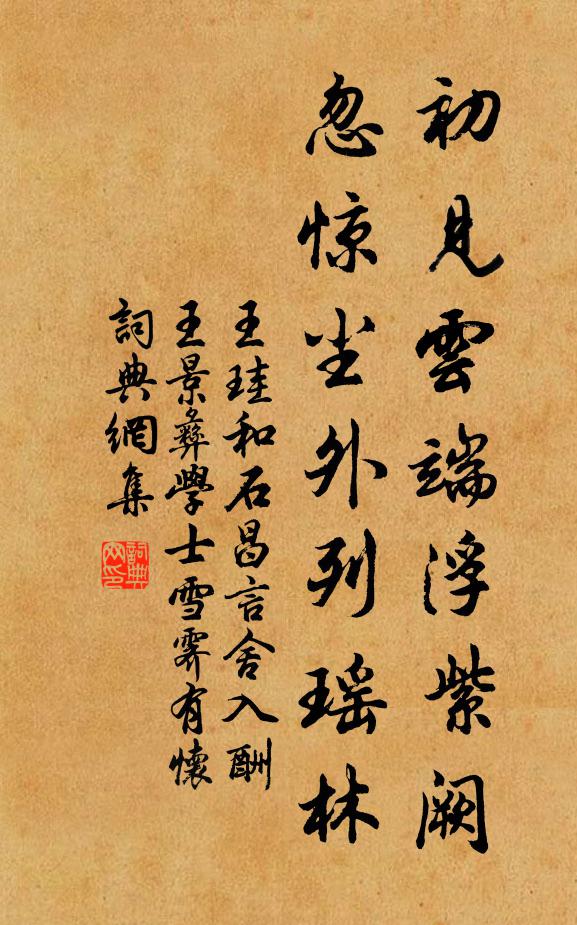 初見雲端浮紫闕
忽惊尘外列瑶林
王珪和石昌言舍入酬
王景彝學士雪霽有懷
詞典網集
詞典
网印